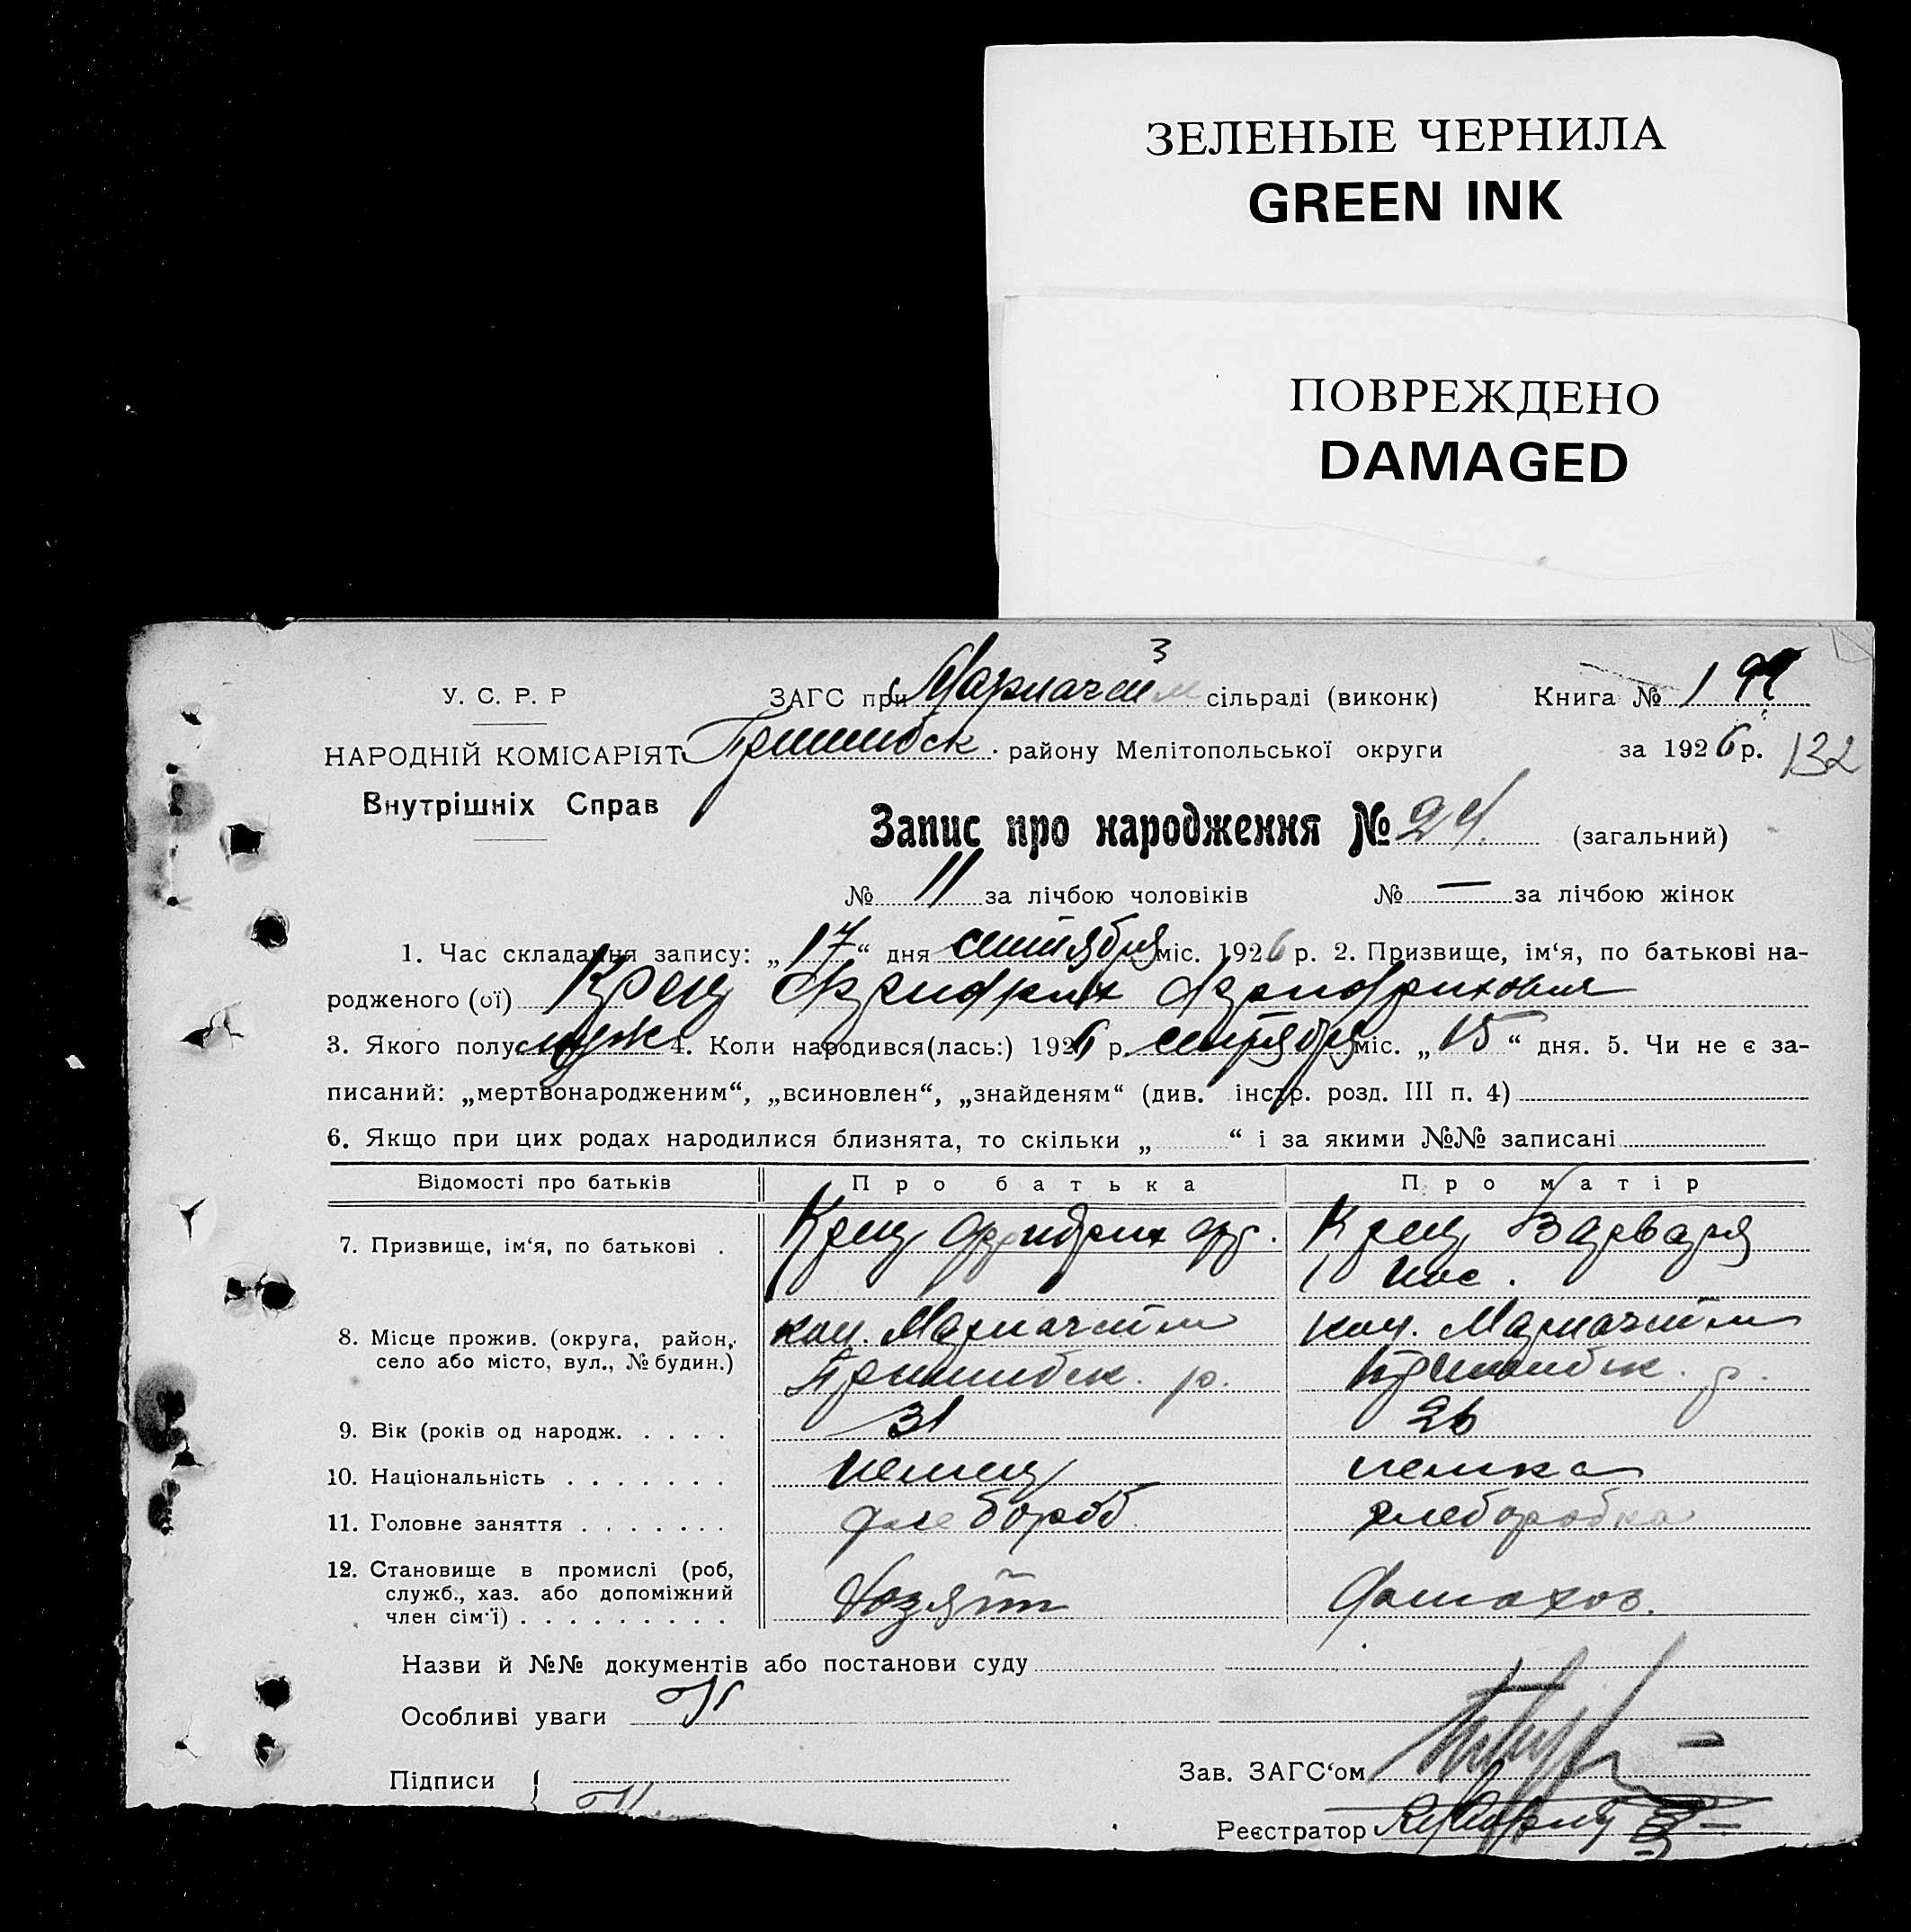 ЗЕЛЕНЫЕ ЧЕРНИЛА
GREEN INK
ПОВРЕЖДЕНО
DAMAGED
3
У. С. Р. Р
ЗАГС при сільраді (виконк)
Книга № 1
НАРОДНІЙ КОМІСАРІЯТ
Пришибск. району Мелітопольської округи
за 1926 р.
132
Внутрішніх Справ
Запис про народження № 24. (загальний)
№ 11 за лічбою чоловіків № — за лічбою жінок
1. Час складання запису: „17“ дня сентября міс. 1926 р. 2. Призвище, ім‘я, по батькові на-
родженого (ої) Крец Фридрих Фридрихович
3. Якого полу муж 4. Коли народився(лась:) 1926 р. сентября міс. „15“ дня. 5. Чи не є за-
писаний: „мертвонародженим“, „всиновлен“, „знайденям“ (див. інстр. розд. III п. 4)
6. Якщо при цих родах народилися близнята, то скільки „ “ і за якими №№ записані
Відомості про батьків
Про батька
Про матір
7. Призвище, ім‘я, по батькові .
Крец Фридрих Фр.
Крец Варвара
Иос.
8. Місце прожив. (округа, район,
село або місто, вул., № будин.)
кол.
Пришибск. р.
кол.
Пришибск. р.
9. Вік (років од народж. . . . .
31
26
10. Національність . . . . . . .
немец
немка
11. Головне заняття . . . . . . .
хлебороб
хлеборобка
12. Становище в промислі (роб,
служб., хаз. або допоміжний
член сім‘ї) . . . . . . . . .
хозяин
домахоз.
Назви й №№ документів або постанови суду
Особливі уваги
Підписи {
Зав. ЗАГС‘ом
Реєстратор